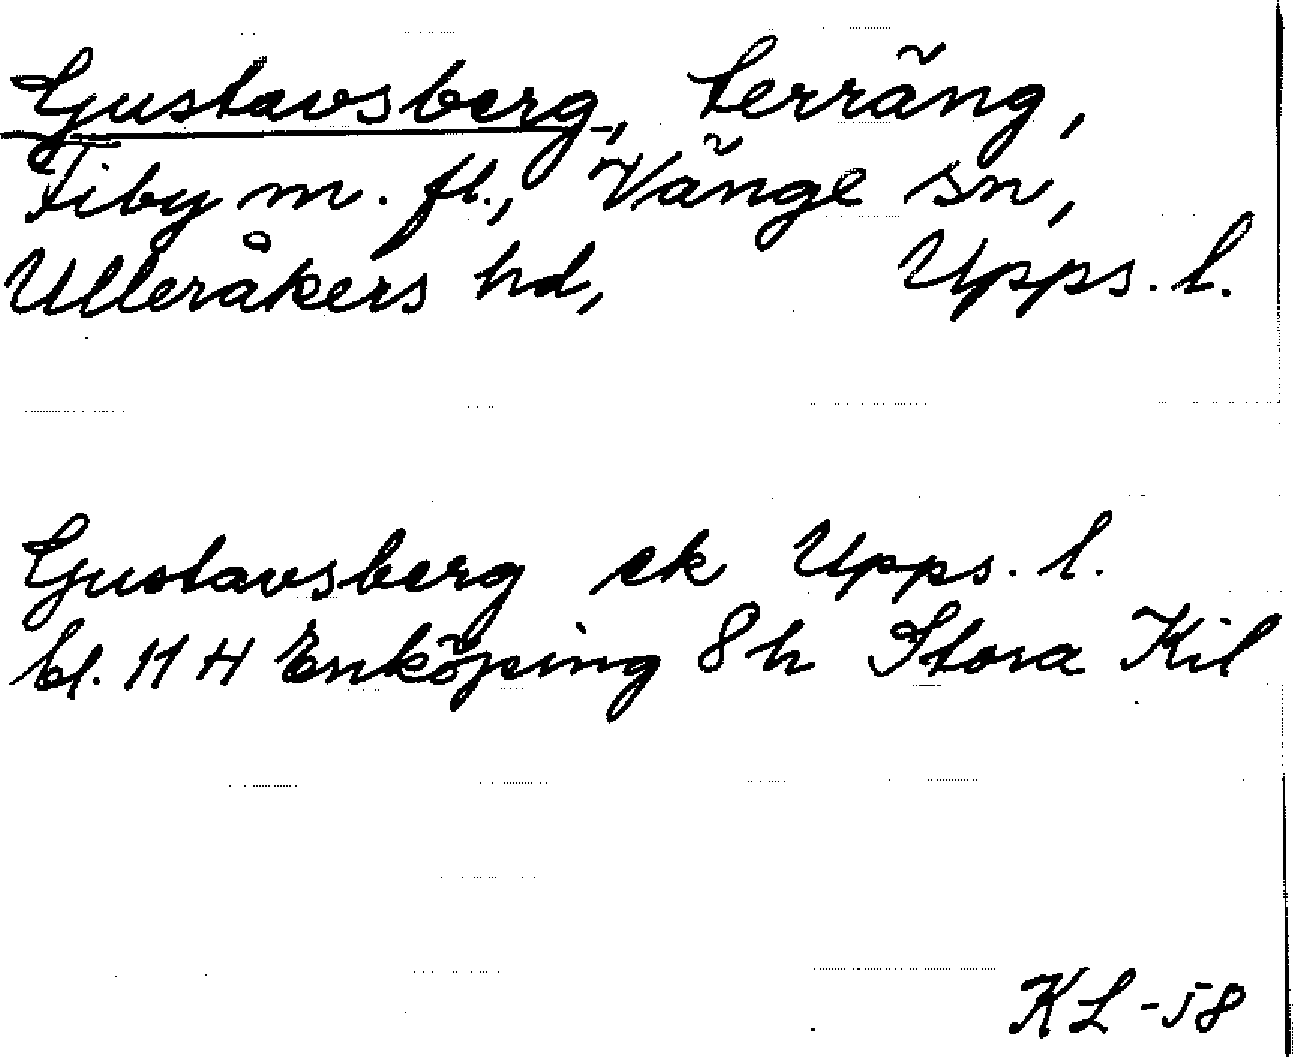 Gustavsberg, terräng,
Fiby m. fl., Vänge sn,
Ulleråkers hd, Upps. l.
Gustavsberg ek Upps. l.
bl. 11 H Enköping 8 h Stora Kil
KL-58